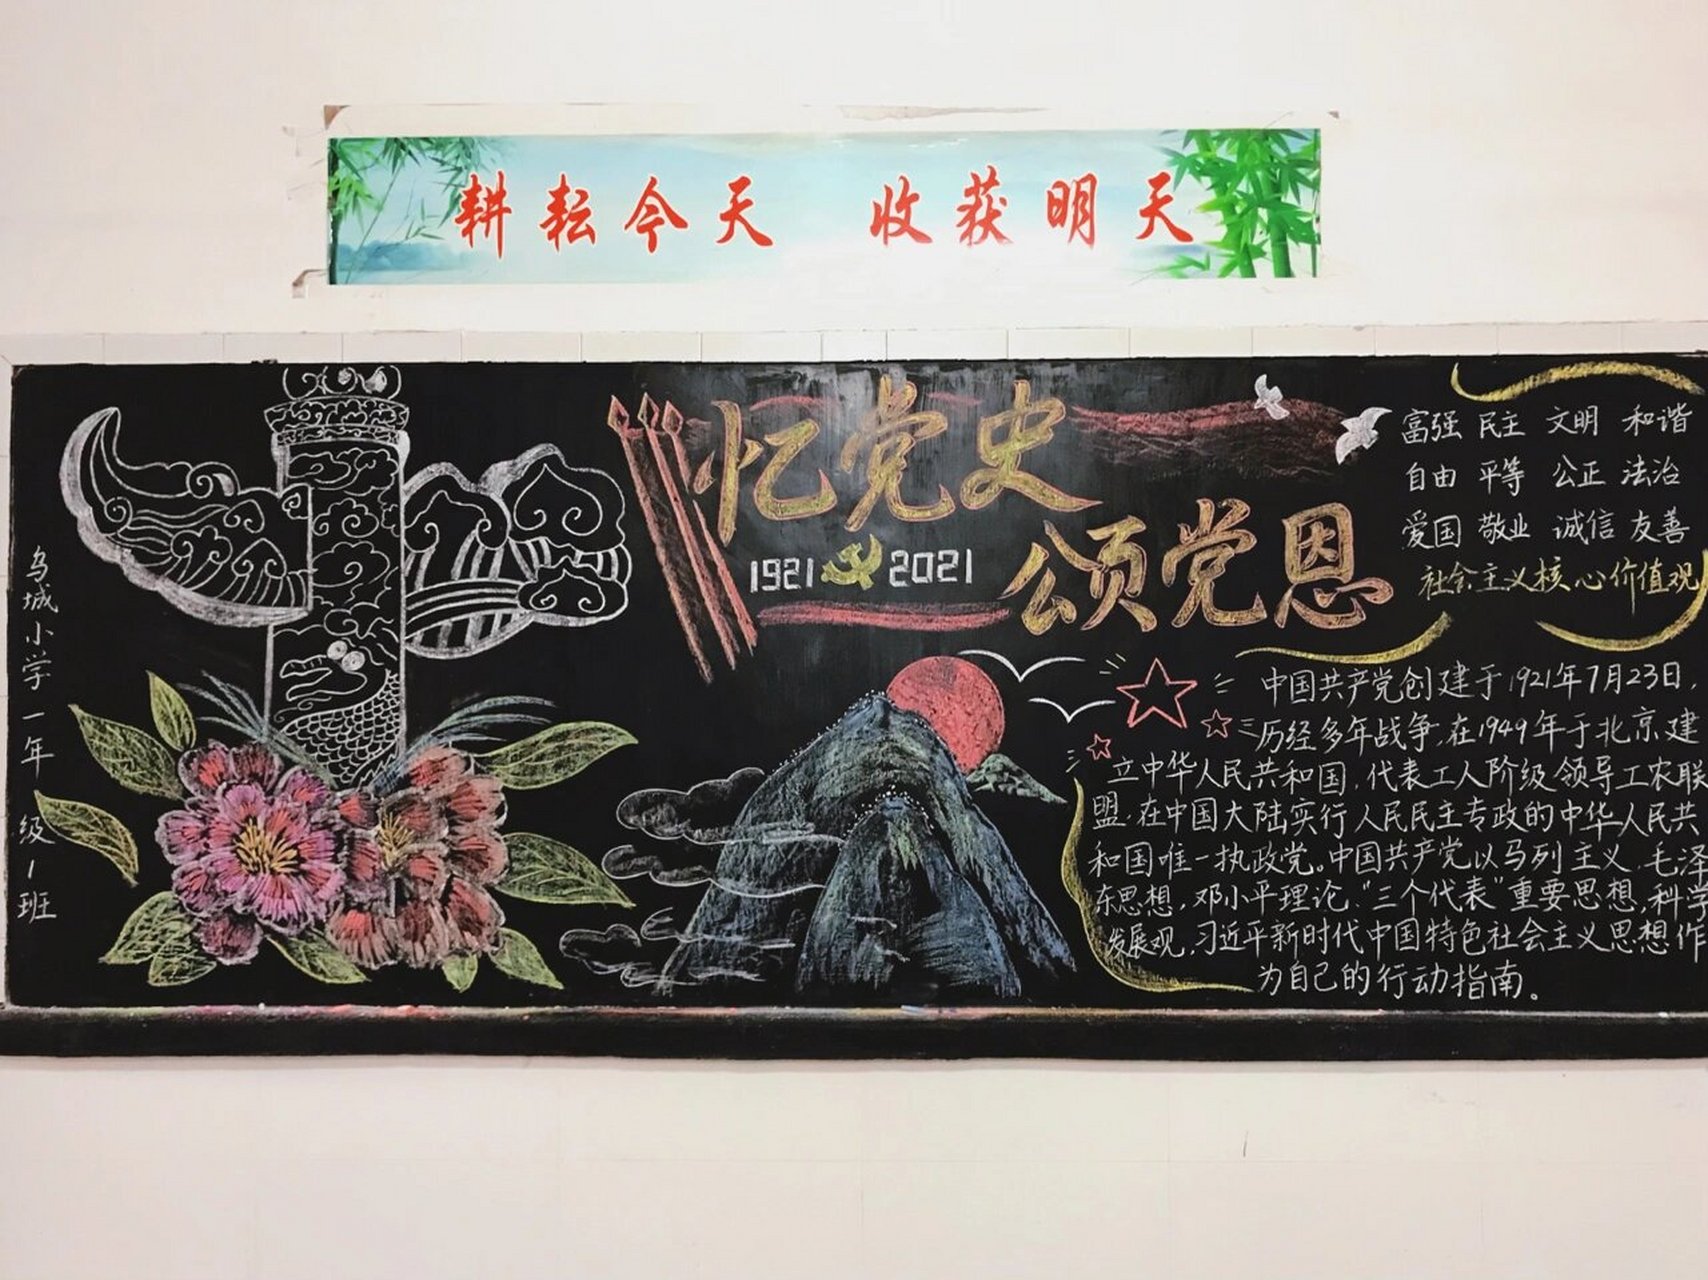 耕耘今天 收获明天
乌城小学一年级1班
忆党史
1921 2021
颂党恩
富强 民主 文明 和谐
自由 平等 公正 法治
爱国 敬业 诚信 友善
社会主义核心价值观
中国共产党创建于1921年7月23日,
历经多年战争,在1949年于北京建
立中华人民共和国,代表工人阶级领导工农联
盟,在中国大陆实行人民民主专政的中华人民共
和国唯一执政党。中国共产党以马列主义、毛泽
东思想,邓小平理论“三个代表”重要思想,科学
发展观,习近平新时代中国特色社会主义思想作
为自己的行动指南。